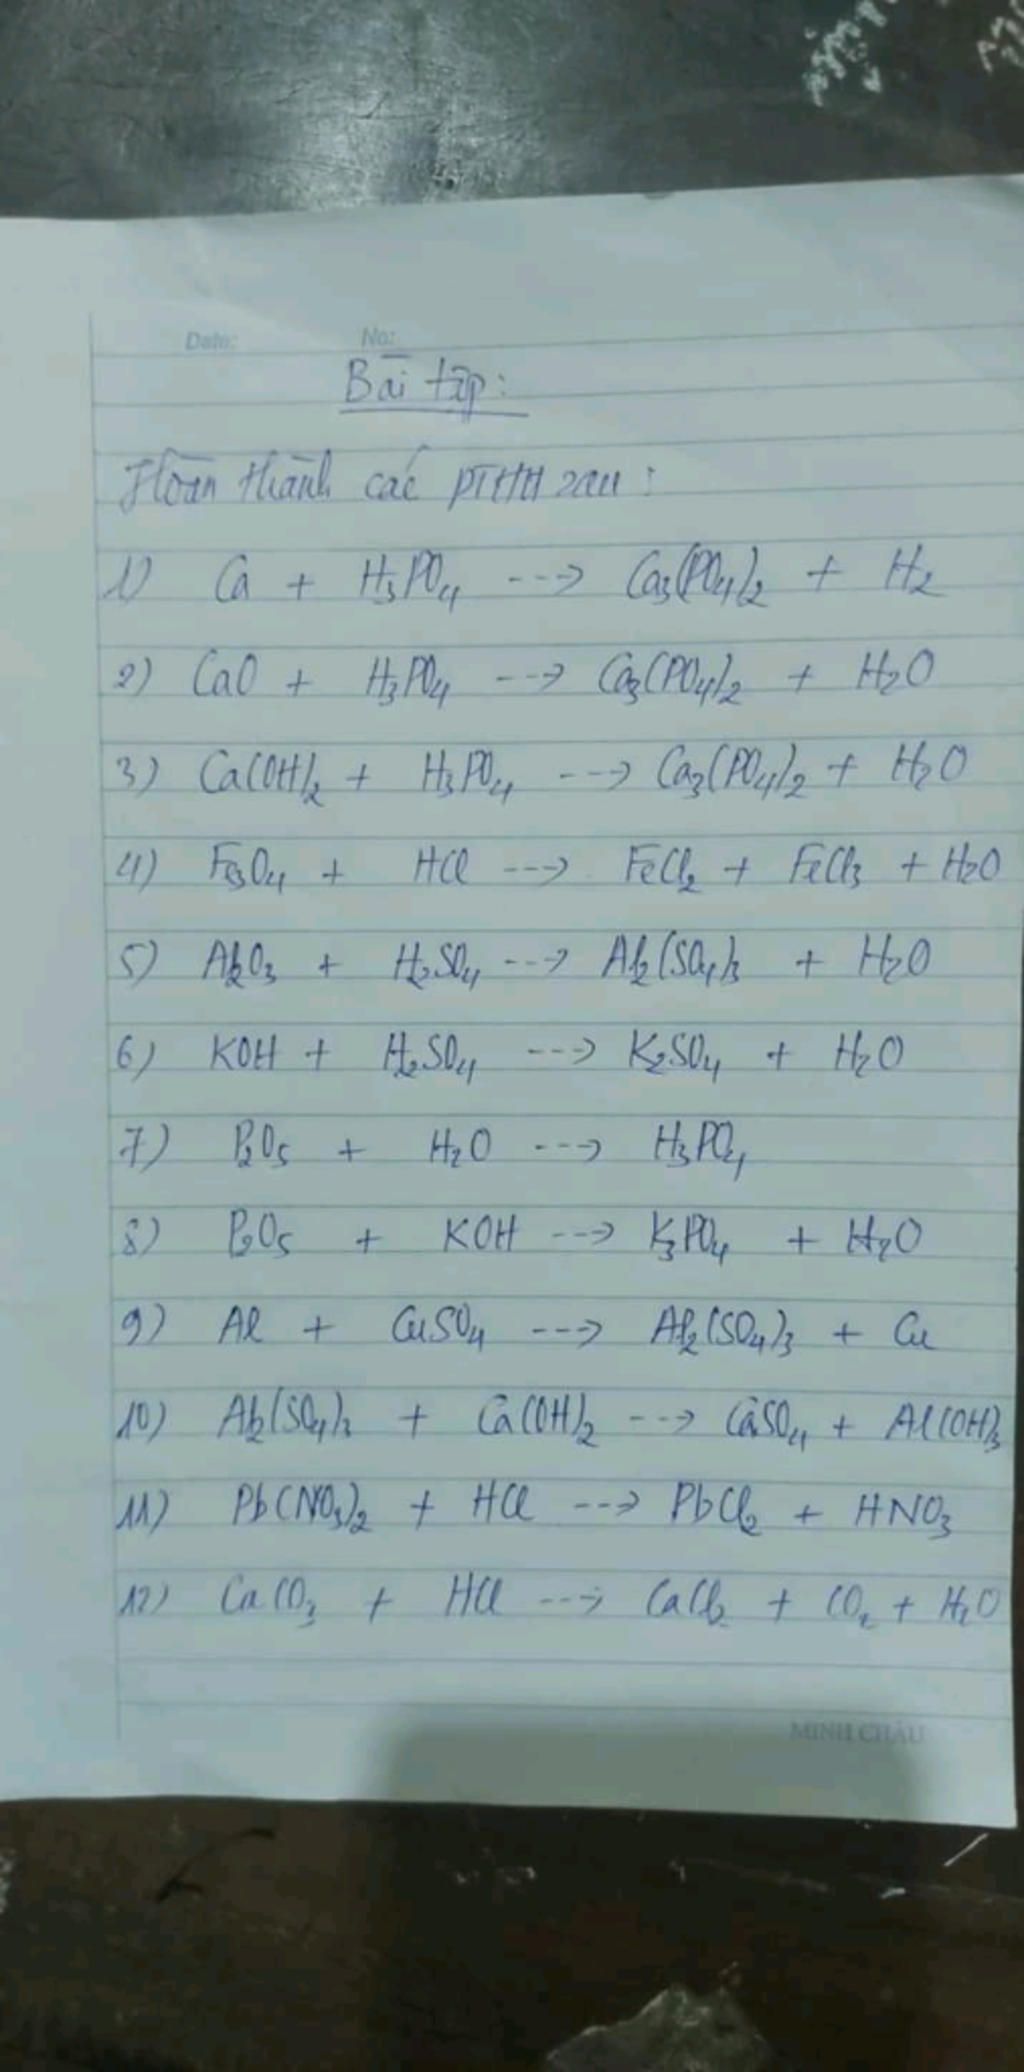 Date: No:
Bài tập:
Hoàn thành các PTHH sau:
1) Ca + H₃PO₄ ---> Ca₃(PO₄)₂ + H₂
2) CaO + H₃PO₄ ---> Ca₃(PO₄)₂ + H₂O
3) Ca(OH)₂ + H₃PO₄ ---> Ca₃(PO₄)₂ + H₂O
4) Fe₃O₄ + HCl ---> FeCl₂ + FeCl₃ + H₂O
5) Al₂O₃ + H₂SO₄ ---> Al₂(SO₄)₃ + H₂O
6) KOH + H₂SO₄ ---> K₂SO₄ + H₂O
7) P₂O₅ + H₂O ---> H₃PO₄
8) P₂O₅ + KOH ---> K₃PO₄ + H₂O
9) Al + CuSO₄ ---> Al₂(SO₄)₃ + Cu
10) Al₂(SO₄)₃ + Ca(OH)₂ ---> CaSO₄ + Al(OH)₃
11) Pb(NO₃)₂ + HCl ---> PbCl₂ + HNO₃
12) CaCO₃ + HCl ---> CaCl₂ + CO₂ + H₂O
MINH CHÂU